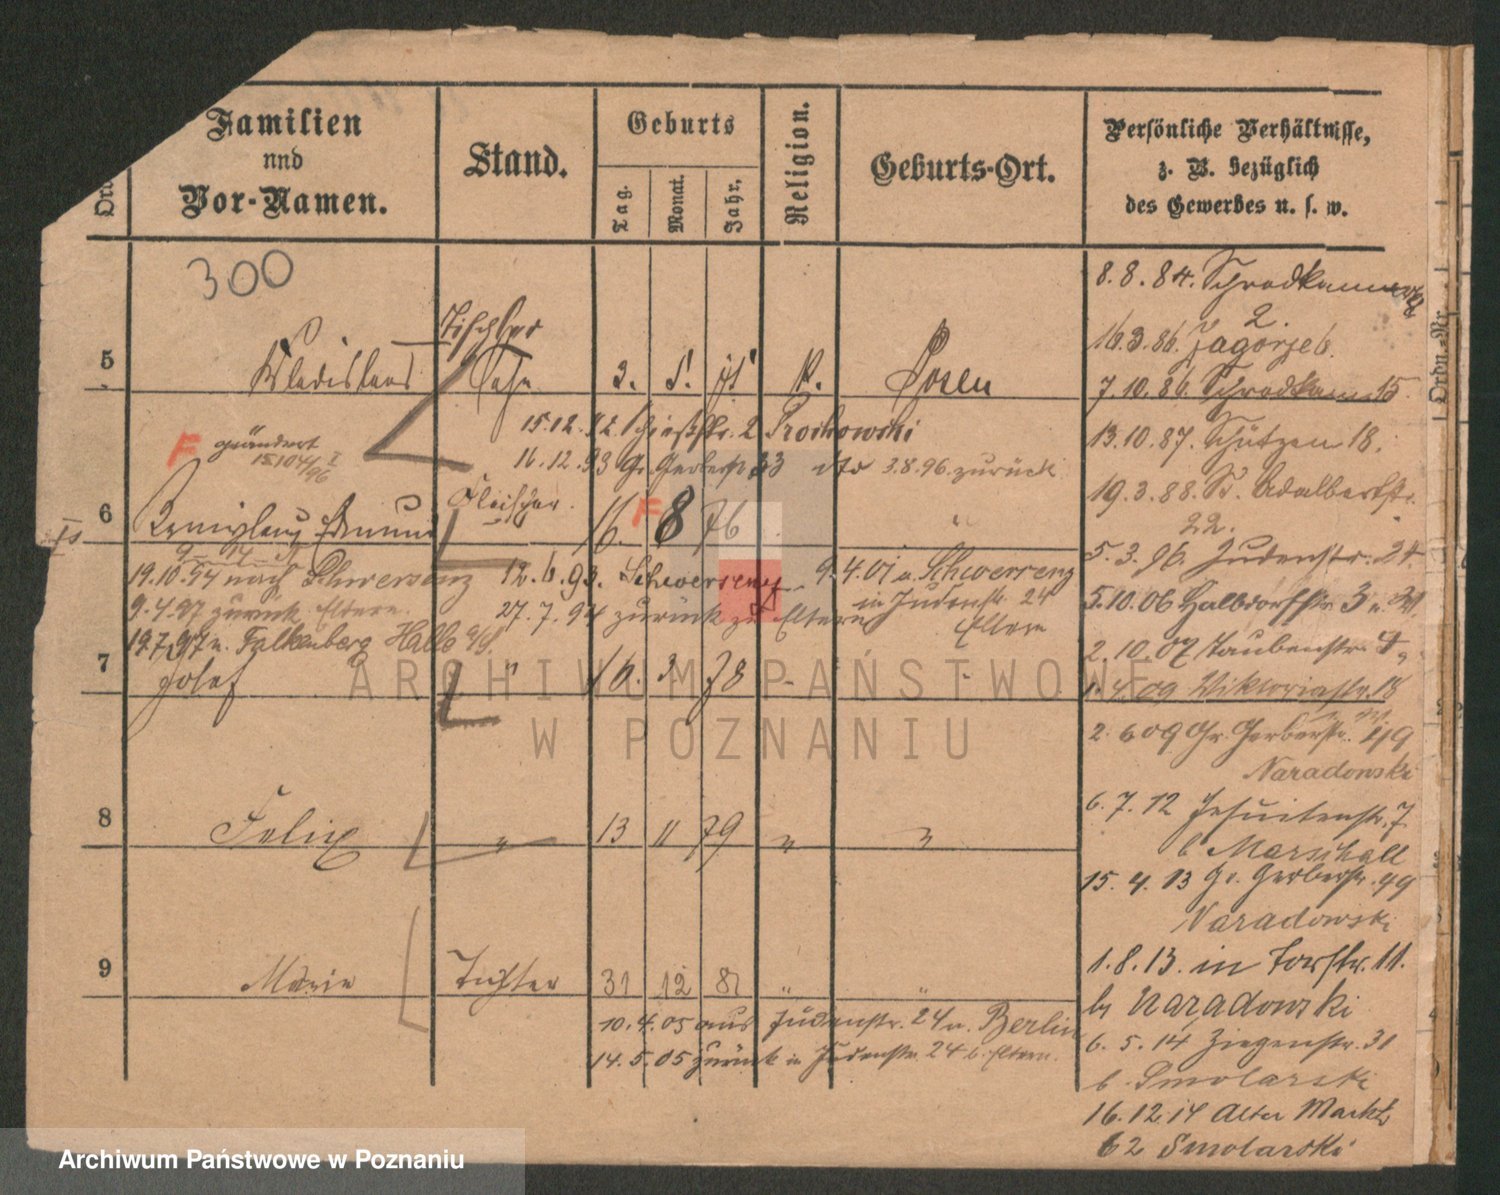 Familien
und
Vor-Namen.
Stand.
Geburts
Tag.
Monat.
Jahr,
Religion.
Geburts-Ort.
Persönliche Verhältnisse,
z. B. bezüglich
des Gewerbes u. s. w.
300
5
Wladislaus
Tischler
Sohn
Posen
15.12.92 Schießstr. 2 Prochowski
16.12.93 Gr. Gerberstr 33 dto 3.8.96. zurück
F geändert
6
Edmund
Fleischer
16. F 8 76
19.10.94 nach Schwersenz
12.6.93. Schwersenz
9.4.01 n. Schwersenz
9.4.97 zurück Eltern.
27.7.94 zurück zu Eltern
in Judenstr. 24
Eltern
19.7.97 n. Falkenberg Halle a/S.
7
Josef
" 16. 3 78
8
Felix
" 13 11 79 " "
9
Marie
Tochter
31 12 81 " "
10.4.05 aus Judenstr. 24 n. Berlin
14.5.05 zurück in Judenstr. 24 b. Eltern.
8.8.84.
2.
16.3.86. Zagorze 6.
7.10.86. 15
13.10.87. Schützen 18.
19.3.88. St. Adalbertstr.
22.
5.3.96. Judenstr. 24
5.10.06 Halbdorfstr. 3
2.10.07 Taubenstr. 4
1.4.09 Viktoriastr. 18
2.6.09 Gr. Gerberstr. 49
Naradowski
6.7.12 Jesuitenstr. 7
b Marschall
15.4.13 Gr. Gerberstr. 49
Naradowski
1.8.13. in Torstr. 11.
by Naradowski
6.5.14 Ziegenstr. 31
b. Smolarski
16.12.14 Alter Markt
62 Smolarski
Ordn.-Nr.
ARCHIWUM PAŃSTWOWE
W POZNANIU
Archiwum Państwowe w Poznaniu